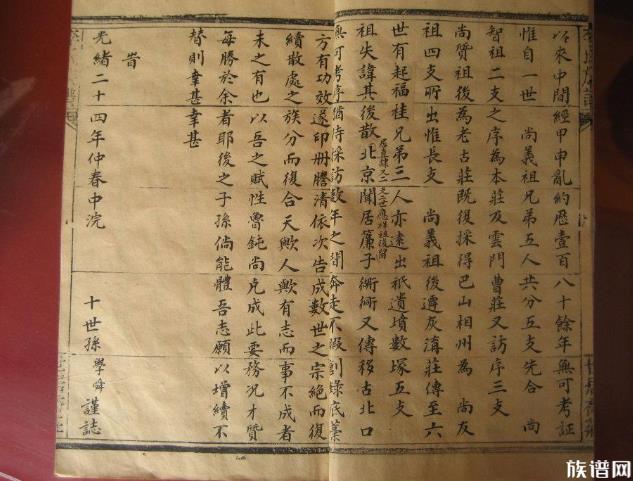 以來中間經甲申亂約歷壹百八十餘年無可考証
惟自一世　尚義祖兄弟五人共分五支先合　尚
智祖二支之序為本莊及雲門曹莊又訪序三支
尚贊祖後為老古莊既復採得巴山相州為　尚友
祖四支所出惟長支　尚義祖後遷灰溝莊傳至六
世有起福桂兄弟三人亦遠出祇遺墳數塚五支
祖失諱其後散北京聞居簾子衚衕又傳移古北口
無可考序猶待採訪數年之間奔走不暇創錄底藁
方有功效遂印冊謄清依次告成數世之宗絕而復
續散處之族分而復合天歟人歟有志而事不成者
未之有也以吾之賦性魯鈍尚克成此要務况才質
每勝於余者耶後之子孫倘能體吾志願以增續不
替則幸甚幸甚
旹
光緒二十四年仲春中浣　十世孫學舜謹誌
族谱网